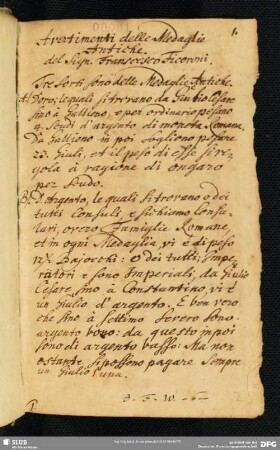 1.
Avertimenti delle Medaglie
Antiche.
del Sign. Francesco Ficoroni.
Tre sorti sono delle Medaglie Antiche.
A. D'oro, le quali si trovano da Giulio Cesare
sino a Gallieno, e per ordinario pesano
4. Scudi d'argento di moneta Romana.
Da Gallieno in poi sogliono pesare
25. giuli, et il peso di esse si re„
gola à ragione di ongaro
per Scudo.
B. D'Argento, le quali si trovano o dei
tutti Consuli, e si chiamo Consu„
lari, overo Famiglie Romane,
et in ogni Medaglia vi è di peso
12½ Bajocchi: o dei tutti Impe„
ratori e sono Imperiali, da Giulio
Cesare sino à Constantino, vi è
un giulio d'argento. È ben vero
che sino à Settimo Severo sono
argento bono: da questo in poi
sono di argento basso: Ma non
ostante si possono pagare sempre
un Giulio l'una.
SLUB
DFG